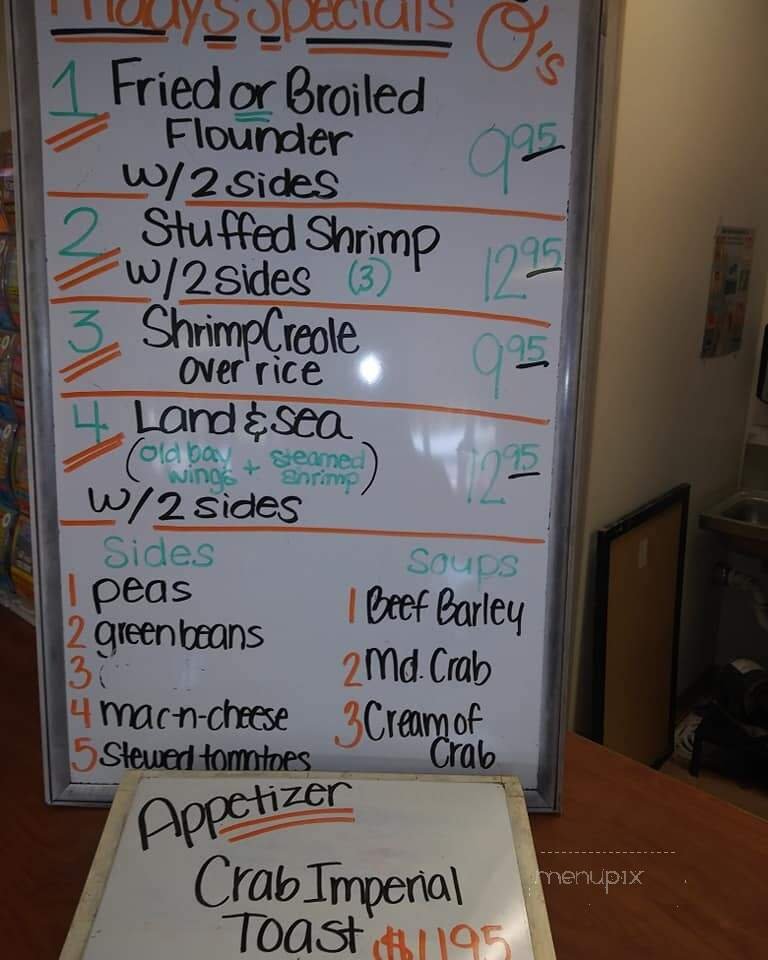 Fridays Specials
O's
1 Fried or Broiled
Flounder
W/2 sides
9 95
2 Stuffed Shrimp
W/2 sides (3)
12 95
3 Shrimp Creole
over rice
9 95
4 Land & sea
(old bay wings + steamed shrimp)
W/2 sides
12 95
Sides
1 peas
2 green beans
3 (
4 mac-n-cheese
5 Stewed tomtoes
Soups
1 Beef Barley
2 Md. Crab
3 Cream of
Crab
Appetizer
Crab Imperial
Toast $11 95
menupix